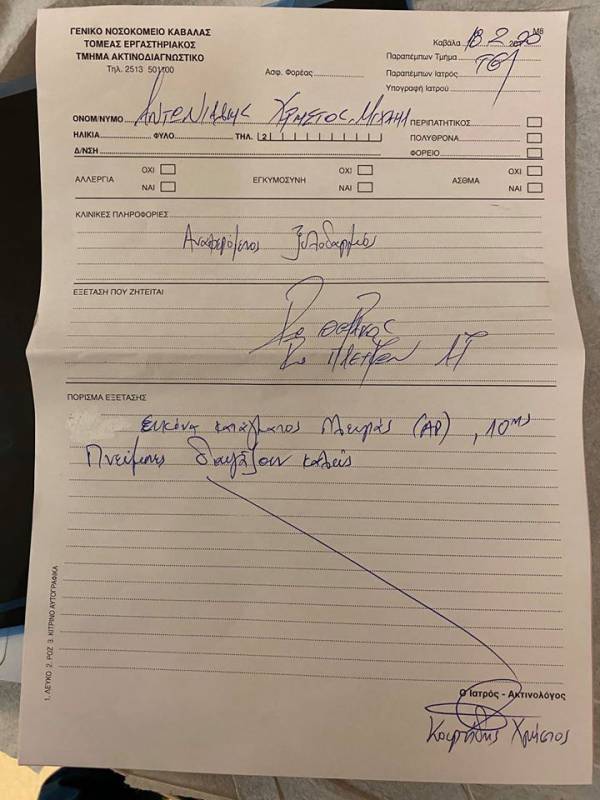 ΓΕΝΙΚΟ ΝΟΣΟΚΟΜΕΙΟ ΚΑΒΑΛΑΣ
ΤΟΜΕΑΣ ΕΡΓΑΣΤΗΡΙΑΚΟΣ
ΤΜΗΜΑ ΑΚΤΙΝΟΔΙΑΓΝΩΣΤΙΚΟ
Τηλ. 2513 501100
Μ6
Καβάλα 18.2.2020
Ασφ. Φορέας
Παραπέμπων Τμήμα ΤΕΠ
Παραπέμπων Ιατρός
Υπογραφή Ιατρού
ΟΝΟΜ/ΝΥΜΟ ΑΝΤΩΝΙΑΔΗΣ ΧΡΗΣΤΟΣ ΜΙΧΑΗΛ
ΠΕΡΙΠΑΤΗΤΙΚΟΣ
ΗΛΙΚΙΑ ΦΥΛΟ ΤΗΛ. 2
ΠΟΛΥΘΡΟΝΑ
Δ/ΝΣΗ
ΦΟΡΕΙΟ
ΑΛΛΕΡΓΙΑ ΟΧΙ ΝΑΙ
ΕΓΚΥΜΟΣΥΝΗ ΟΧΙ ΝΑΙ
ΑΣΘΜΑ ΟΧΙ ΝΑΙ
ΚΛΙΝΙΚΕΣ ΠΛΗΡΟΦΟΡΙΕΣ
Αναφερόμενος ξυλοδαρμός
ΕΞΕΤΑΣΗ ΠΟΥ ΖΗΤΕΙΤΑΙ
Ro ΘΩΡΑΚΟΣ
Ro ΠΛΕΥΡΩΝ ΑΡ
ΠΟΡΙΣΜΑ ΕΞΕΤΑΣΗΣ
Εικόνα κατάγματος πλευράς (ΑΡ), 10ης
Πνεύμονες διαυγάζουν καλώς
1. ΛΕΥΚΟ 2. ΡΟΖ 3. ΚΙΤΡΙΝΟ ΑΥΤΟΓΡΑΦΙΚΑ
Ο Ιατρός - Ακτινολόγος
Χρήστος